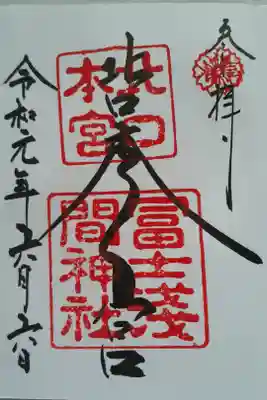 奉拝
北口
本宮
冨士淺
間神社
令和元年六月六日